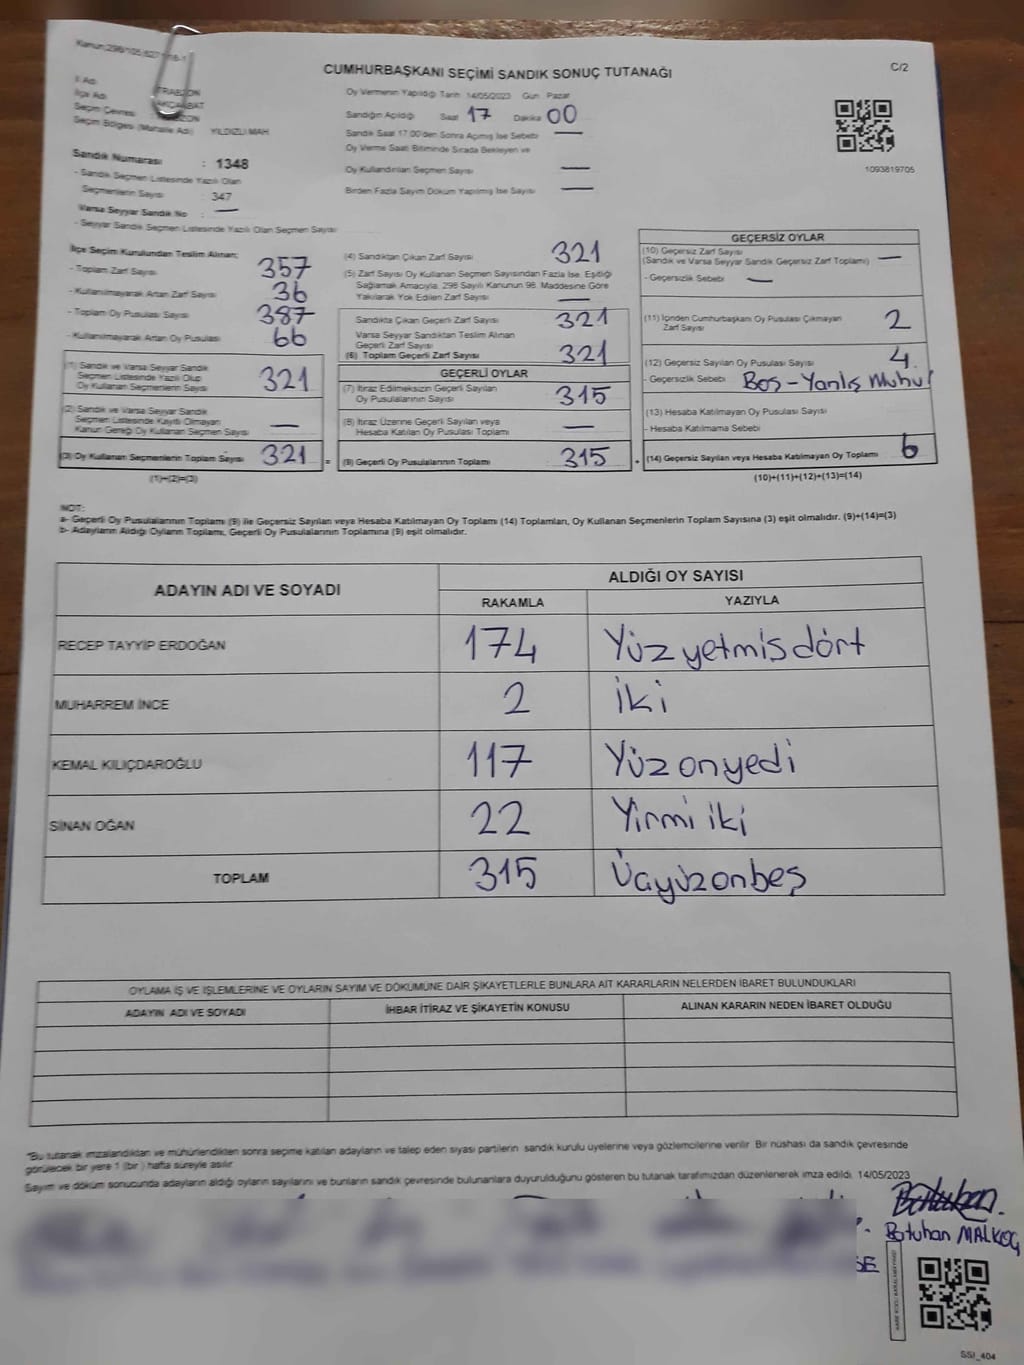 Kanun:298/105
C/2
CUMHURBAŞKANI SEÇİMİ SANDIK SONUÇ TUTANAĞI
İl Adı TRABZON
İlçe Adı AKÇAABAT
Seçim Çevresi
Seçim Bölgesi (Mahalle Adı) YILDIZLI MAH
Sandık Numarası : 1348
- Sandık Seçmen Listesinde Yazılı Olan
Seçmenlerin Sayısı : 347
Varsa Seyyar Sandık No : —
- Seyyar Sandık Seçmen Listesinde Yazılı Olan Seçmen Sayısı
Oy Vermenin Yapıldığı Tarih 14/05/2023 Gün Pazar
Sandığın Açıldığı Saat 17 Dakika 00
Sandık Saat 17.00'den Sonra Açımış İse Sebebi —
Oy Verme Saati Bitiminde Sırada Bekleyen ve
Oy Kullandırılan Seçmen Sayısı —
Birden Fazla Sayım Döküm Yapılmış İse Sayısı —
1093819705
İlçe Seçim Kurulundan Teslim Alınan;
- Toplam Zarf Sayısı 357
- Kullanılmayarak Artan Zarf Sayısı 36
- Toplam Oy Pusulası Sayısı 387
- Kullanılmayarak Artan Oy Pusulası 66
(1) Sandık ve Varsa Seyyar Sandık
Seçmen Listesinde Yazılı Olup
Oy Kullanan Seçmenlerin Sayısı 321
(2) Sandık ve Varsa Seyyar Sandık
Seçmen Listesinde Kayıtlı Olmayan
Kanun Gereği Oy Kullanan Seçmen Sayısı —
(3) Oy Kullanan Seçmenlerin Toplam Sayısı 321 =
(1)+(2)=(3)
(4) Sandıktan Çıkan Zarf Sayısı 321
(5) Zarf Sayısı Oy Kullanan Seçmen Sayısından Fazla İse, Eşitliği
Sağlamak Amacıyla, 298 Sayılı Kanunun 98. Maddesine Göre
Yakılarak Yok Edilen Zarf Sayısı —
Sandıkta Çıkan Geçerli Zarf Sayısı 321
Varsa Seyyar Sandıktan Teslim Alınan
Geçerli Zarf Sayısı
(6) Toplam Geçerli Zarf Sayısı 321
GEÇERLİ OYLAR
(7) İtiraz Edilmeksizin Geçerli Sayılan
Oy Pusulalarının Sayısı 315
(8) İtiraz Üzerine Geçerli Sayılan veya
Hesaba Katılan Oy Pusulası Toplamı —
(9) Geçerli Oy Pusulalarının Toplamı 315 +
GEÇERSİZ OYLAR
(10) Geçersiz Zarf Sayısı
(Sandık ve Varsa Seyyar Sandık Geçersiz Zarf Toplamı) —
- Geçersizlik Sebebi —
(11) İçinden Cumhurbaşkanı Oy Pusulası Çıkmayan
Zarf Sayısı 2
(12) Geçersiz Sayılan Oy Pusulası Sayısı 4
- Geçersizlik Sebebi Boş - Yanlış
(13) Hesaba Katılmayan Oy Pusulası Sayısı
- Hesaba Katılmama Sebebi
(14) Geçersiz Sayılan veya Hesaba Katılmayan Oy Toplamı 6
(10)+(11)+(12)+(13)=(14)
NOT:
a- Geçerli Oy Pusulalarının Toplamı (9) ile Geçersiz Sayılan veya Hesaba Katılmayan Oy Toplamı (14) Toplamları, Oy Kullanan Seçmenlerin Toplam Sayısına (3) eşit olmalıdır. (9)+(14)=(3)
b- Adayların Aldığı Oyların Toplamı, Geçerli Oy Pusulalarının Toplamına (9) eşit olmalıdır.
ADAYIN ADI VE SOYADI
ALDIĞI OY SAYISI
RAKAMLA YAZIYLA
RECEP TAYYİP ERDOĞAN 174 Yüz yetmis dört
MUHARREM İNCE 2 İki
KEMAL KILIÇDAROĞLU 117 Yüz onyedi
SİNAN OĞAN 22 Yirmi iki
TOPLAM 315 Üçyüzonbeş
OYLAMA İŞ VE İŞLEMLERİNE VE OYLARIN SAYIM VE DÖKÜMÜNE DAİR ŞİKAYETLERLE BUNLARA AİT KARARLARIN NELERDEN İBARET BULUNDUKLARI
ADAYIN ADI VE SOYADI İHBAR İTİRAZ VE ŞİKAYETİN KONUSU ALINAN KARARIN NEDEN İBARET OLDUĞU
"Bu tutanak imzalandıktan ve mühürlendikten sonra seçime katılan adayların ve talep eden siyasi partilerin sandık kurulu üyelerine veya gözlemcilerine verilir. Bir nüshası da sandık çevresinde
görülecek bir yere 1 (bir) hafta süreyle asılır.
Sayım ve döküm sonucunda adayların aldığı oyların sayılarını ve bunların sandık çevresinde bulunanlara duyurulduğunu gösteren bu tutanak tarafımızdan düzenlenerek imza edildi. 14/05/2023
Batuhan MALKOÇ
SSI_404